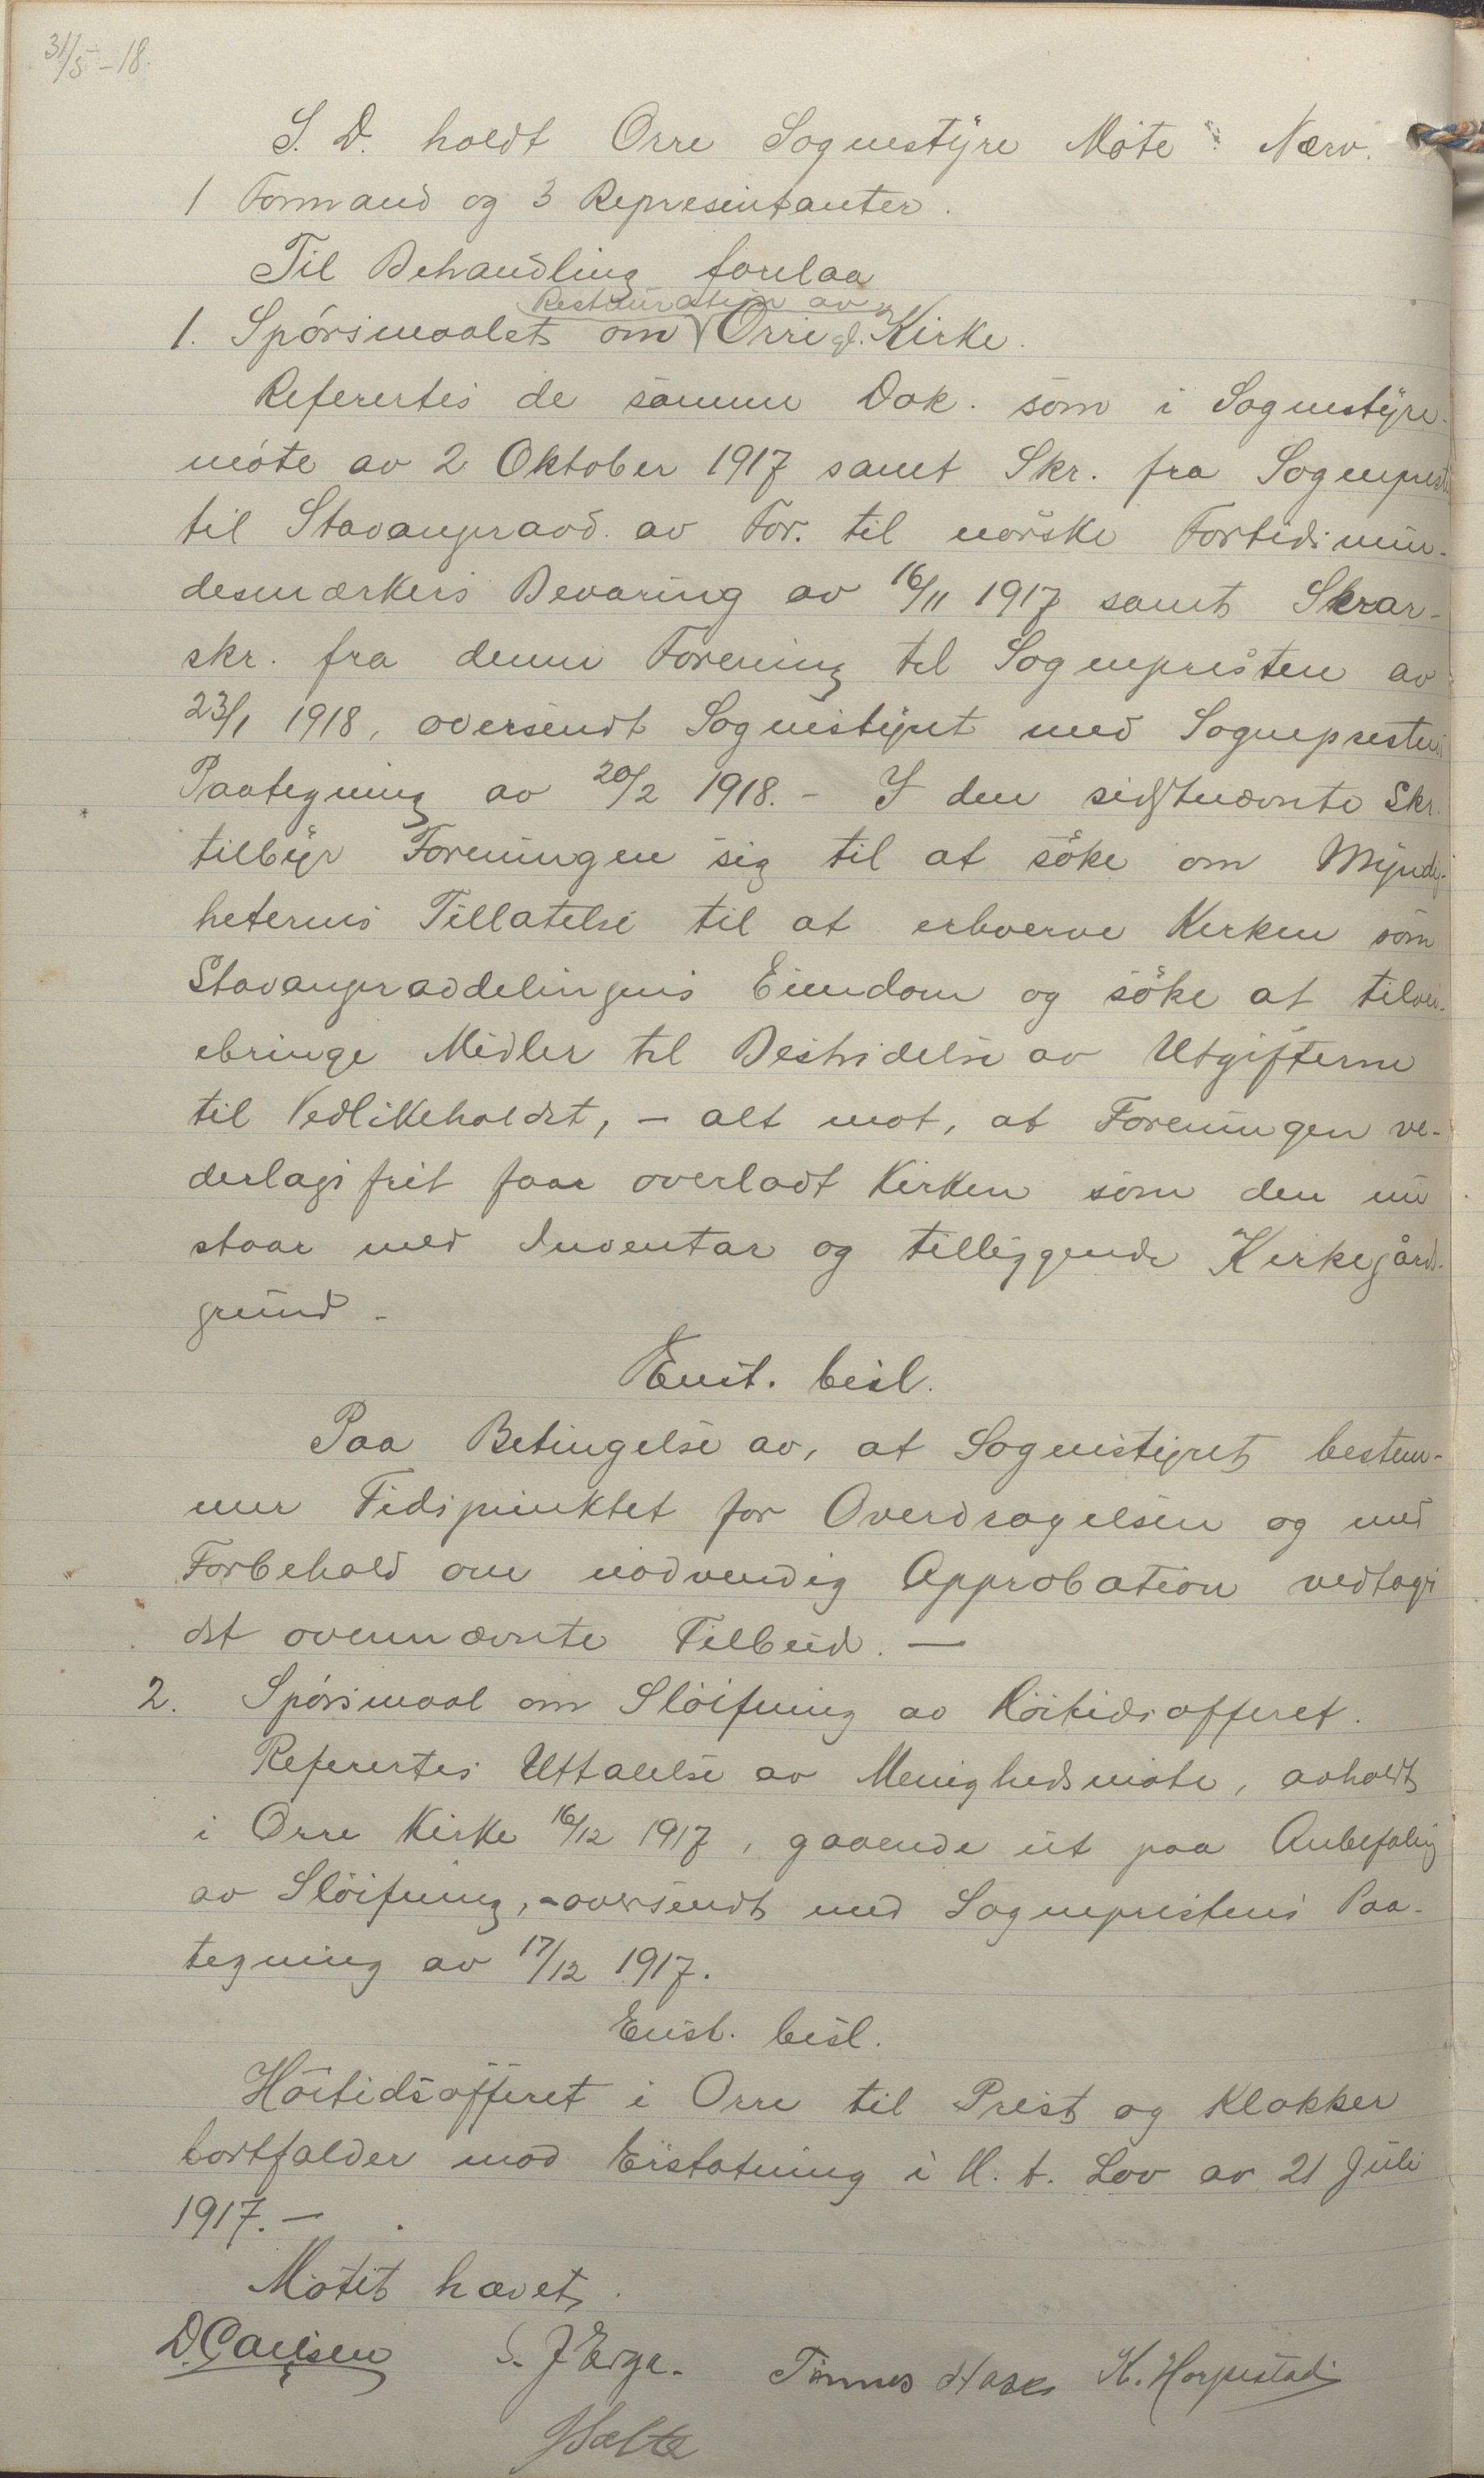 31/5-18.
S. D. holdt Orre Sognestyre Møte. Nærv.
1 Formand og 3 Representanter.
Til Behandling forelaa
Restauration av
1. Spørsmaalet om Orre gl. Kirke.
Refertes de samme Dok. som i Sognestyre-
møte av 2 Oktober 1917 samt Skr. fra Sognepresten
til Stavangeravd. av For. til norske Fortidsmin-
desmærkers Bevaring av 16/11 1917 samt Svar-
skr. fra denne Forening til Sognepresten av
23/1 1918, oversendt Sognestyret med Sogneprestens
Paategning av 20/2 1918. - I den sidstnævnte Skr.
tilbyr Foreningen sig til at søke om Myndig-
heternes Tillatelse til at erhverve Kirken som
Stavangeravdelingens Eiendom og søke at tilvei-
ebringe Midler til Bestridelse av Utgifterne
til Vedlikeholdet, - alt mot, at Foreningen ve-
derlagsfrit faar overladt Kirken som den nu
staar med Inventar og tilliggende Kirkegårds-
grund -
Enst. besl.
Paa Betingelse av, at Sognestyret bestem-
mer Tidspunktet for Overdragelsen og med
Forbehold om nødvendig Approbation vedtages
det ovennævnte Tilbud. -
2. Spørsmaal om Sløifning av Høitidsofferet.
Refertes Uttalelse av Menighedsmøte, avholdt
i Orre Kirke 16/12 1917, gaaende ut paa Anbefaling
av Sløifning, - oversendt med Sogneprestens Paa-
tegning av 17/12 1917.
Enst. besl.
Høitidsofferet i Orre til Prest og Klokker
bortfalder mod Erstatning i H. t. Lov av 21 Juli
1917. -
Møtet hævet.
D. Carlsen S. J Erga. Tønnes Hases K. Horpestad
J Salte